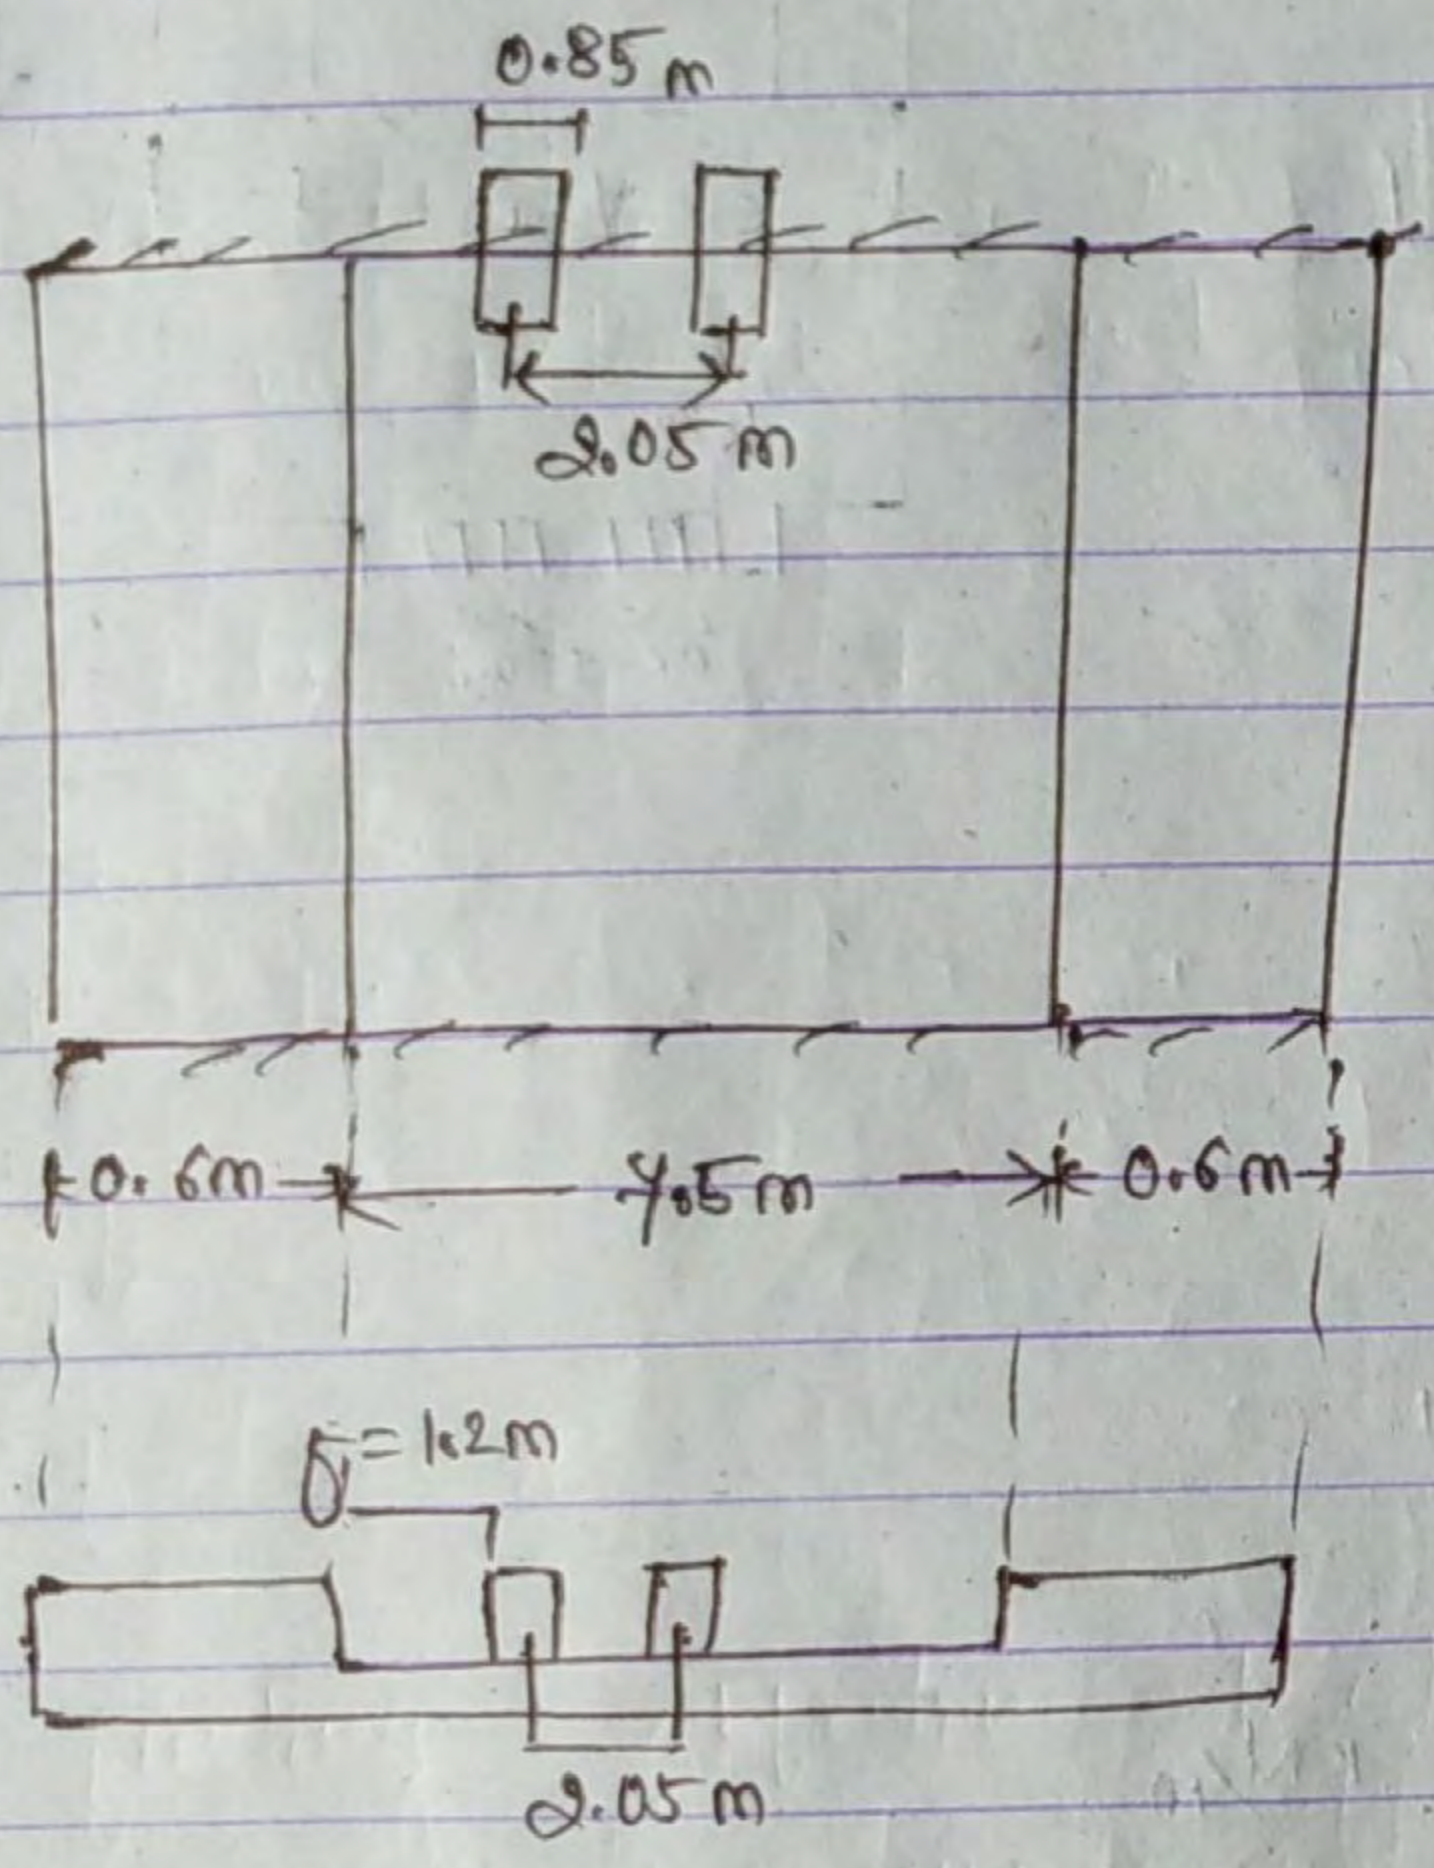 0.85 m
2.05 m
0.6m
7.5m
0.6m
g = 1.2m
2.05 m